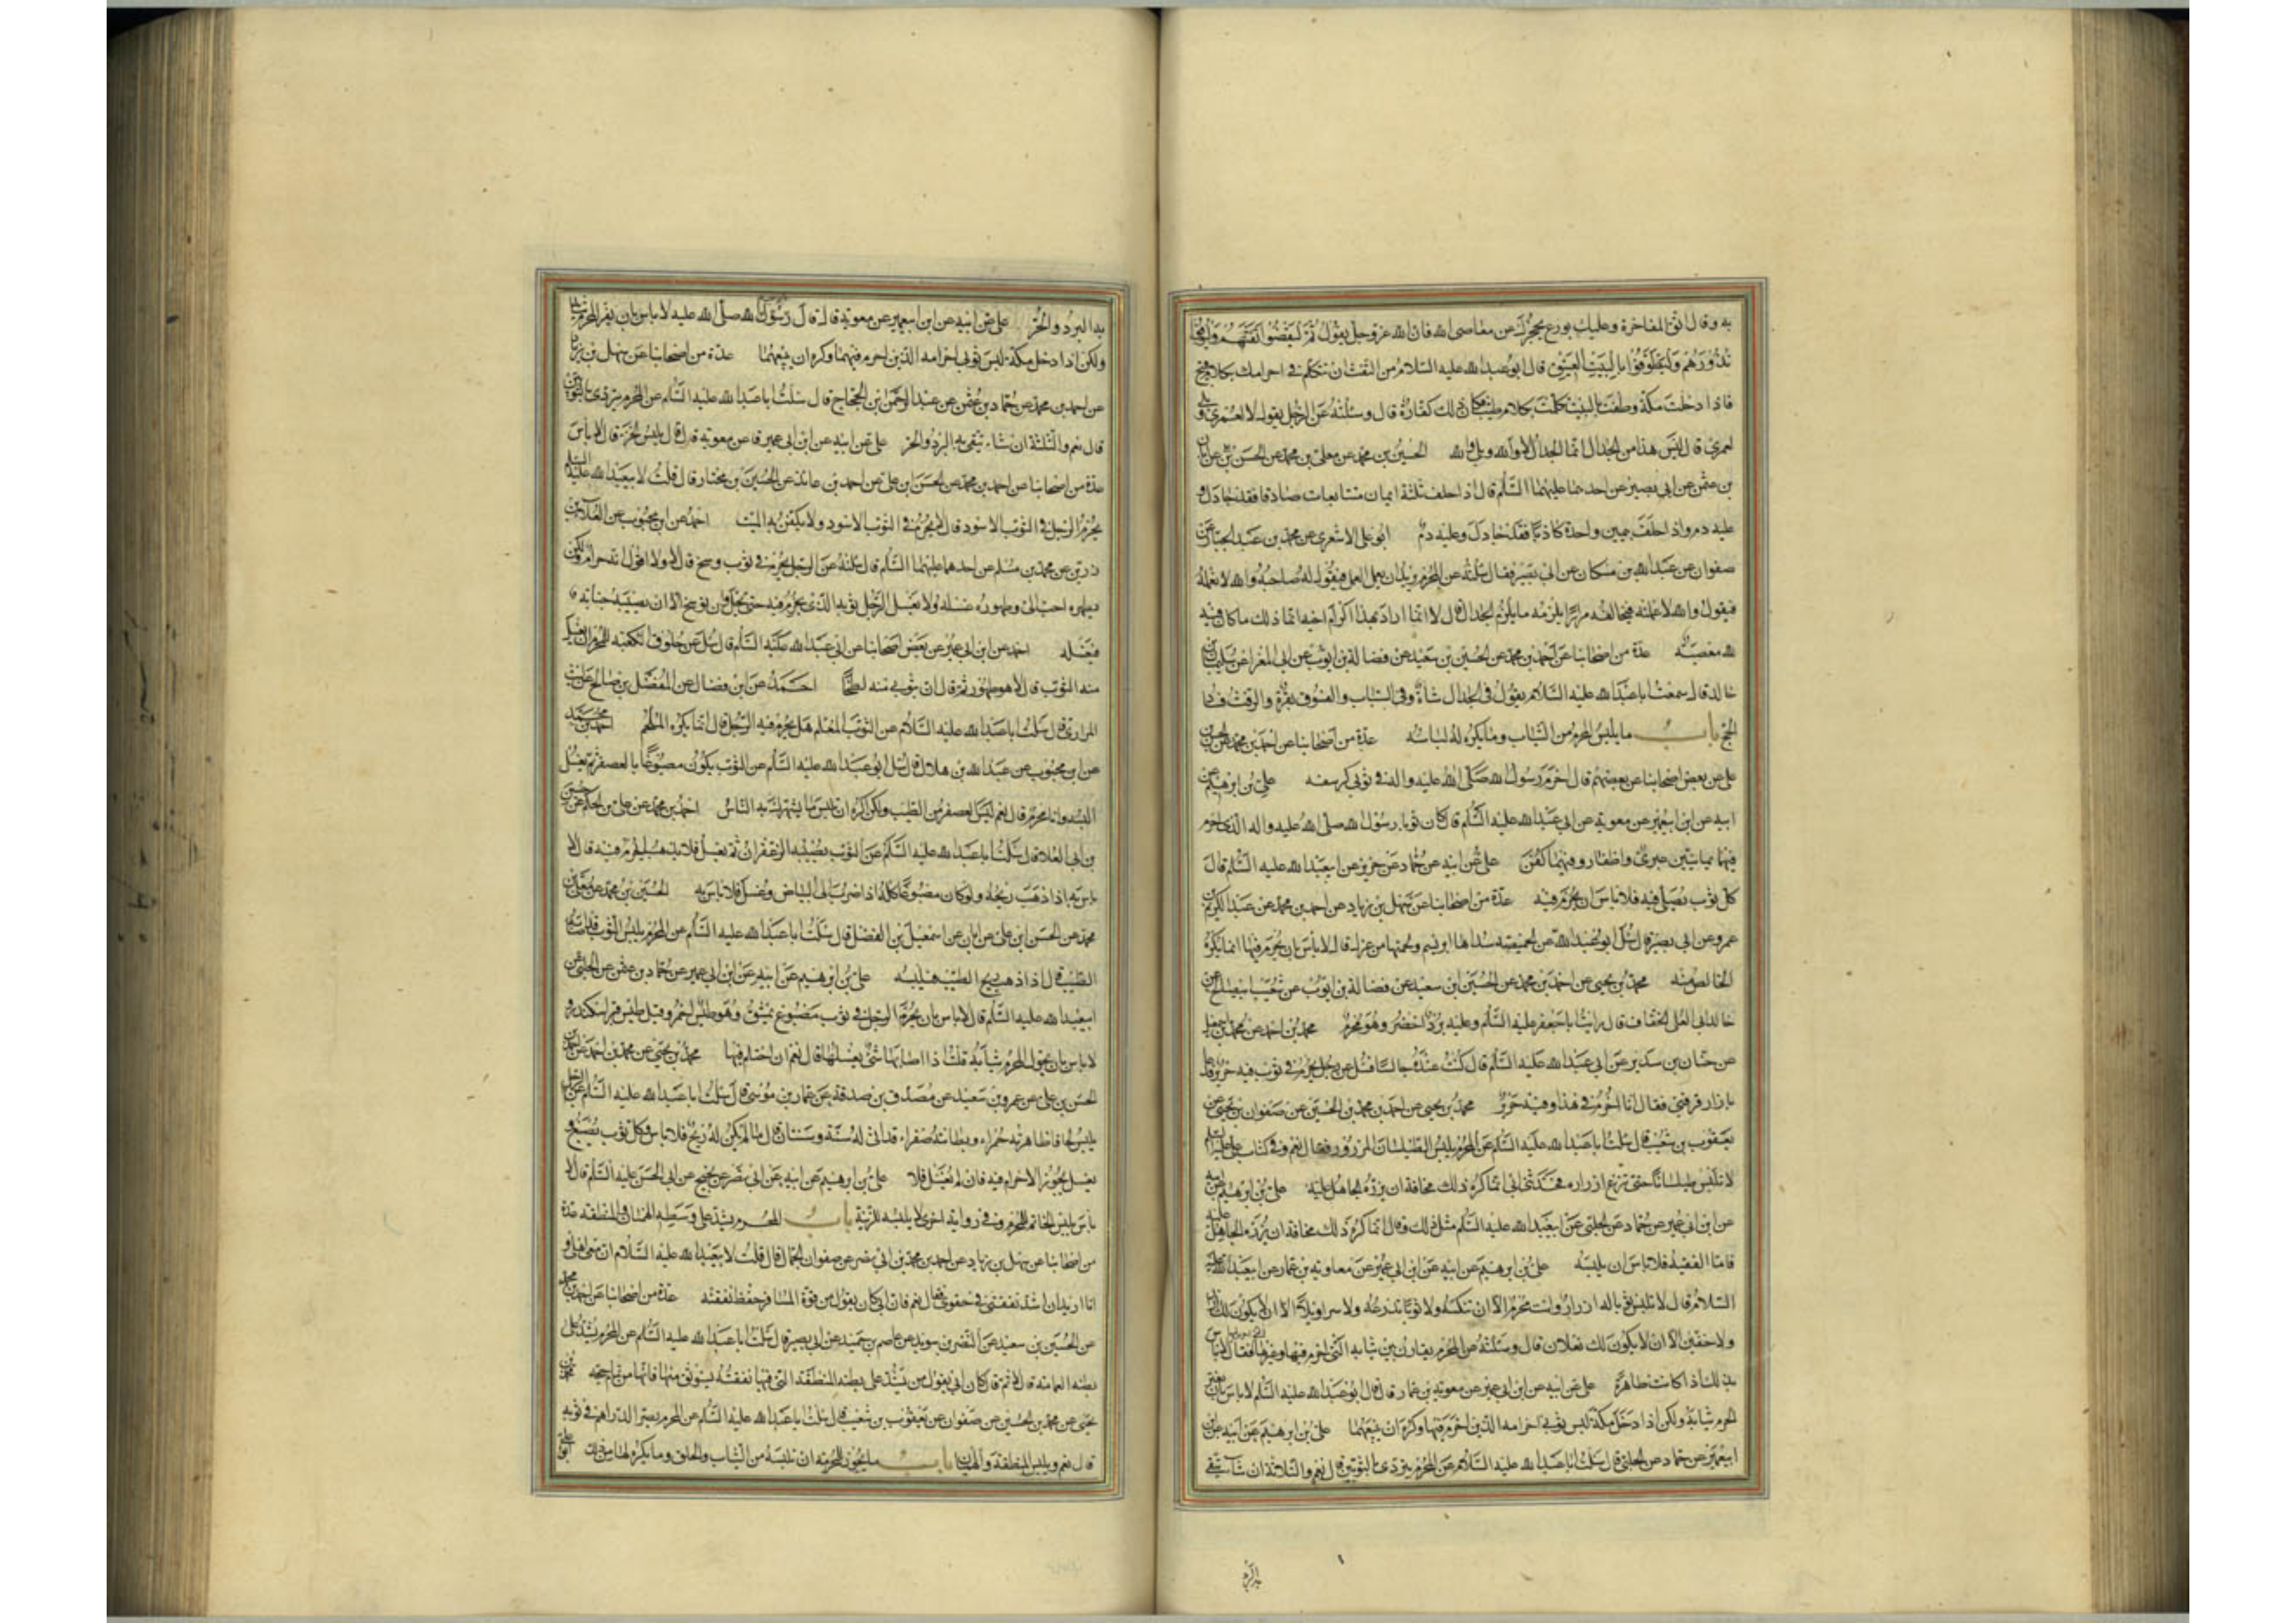 به وقال اتق المفاخرة وعليك بورع يحجزك عن معاصى الله فان الله عز وجل يقول ثم ليقضوا تفثهم وليوفوا
نذورهم وليطوفوا بالبيت العتيق قال ابو عبد الله عليه السلام من التفث ان تتكلم فى احرامك بكلام قبيح
فاذا دخلت مكة وطفت بالبيت تكلمت بكلام طيب فكان ذلك كفارة قال وسئلته عن الرجل يقول لا لعمرى وبلى
لعمرى قال ليس هذا من الجدال انما الجدال لا والله وبلى والله الحسين بن محمد عن معلى بن محمد عن الحسن بن على عن ابان
بن عثمن عن ابى بصير عن احدهما عليهما السلم قال اذا حلف ثلثة ايمان متتابعات صادقا فقد جادل و
عليه دم واذا حلف بيمين واحدة كاذبا فقد جادل وعليه دم ابو على الاشعرى عن محمد بن عبد الجبار عن
صفوان عن عبد الله بن مسكان عن ابى بصير فقال سئلته عن المحرم يريد ان يعمل العمل فيقول له صاحبه والله لا تعمله
فيقول والله لاعملنه فيحالفه مرارا يلزمه ما يلزم الجدال قال لا انما اراد بهذا اكرام اخيه انما ذلك ما كان فيه
لله معصية عدة من اصحابنا عن احمد بن محمد عن الحسين بن سعيد عن فضالة بن ايوب عن ابى المغرا عن سليمان بن
خالد قال سمعت ابا عبد الله عليه السلام يقول فى الجدال شاة وفى السباب والفسوق بقرة والرفث فساد
الحج باب ما يلبس المحرم من الثياب وما يكره له لباسه عدة من اصحابنا عن احمد بن محمد عن الحسن بن
على عن بعض اصحابنا عن بعضهم قال احرم رسول الله صلى الله عليه واله فى ثوبى كرسف على بن ابرهيم عن
ابيه عن ابن ابيعمير عن معوية عن ابى عبد الله عليه السلم قال كان ثوبا رسول الله صلى الله عليه واله الذى احرم
فيهما يمانيين عبرى واظفار وفيهما كفن على عن ابيه عن حماد عن حريز عن ابيعبد الله عليه السلم قال
كل ثوب يصلى فيه فلا باس ان يحرم فيه عدة من اصحابنا عن سهل بن زياد عن احمد بن محمد عن عبد الكريم بن
عمرو عن ابى بصير قال سئل ابو عبد الله عن الخميصة سداها ابريسم ولحمتها من غزل قال لا باس بان يحرم فيها انما يكره
الخالص منه محمد بن يحيى عن احمد بن محمد عن الحسين بن سعيد عن فضالة بن ايوب عن شعيب ابيصالح عن
خالد ابى العلا الخفاف قال رايت ابا جعفر عليه السلم وعليه برد اخضر وهو محرم محمد بن احمد عن محمد بن اسمعيل
عن حنان بن سدير عن ابى عبد الله عليه السلم قال كنت عنده جالسا فسئل عن رجل يحرم فى ثوب فيه حرير فدعا
بازار قرقبى فقال انا احرم فى هذا وفيه حرير محمد بن يحيى عن احمد بن محمد بن الحسين عن صفوان بن يحيى عن
يعقوب بن شعيب قال سئلت ابا عبد الله عليه السلم عن المحرم يلبس الطيلسان المزرور فقال نعم وفى كتاب على عليه السلم
لا تلبس طيلسانا حتى تنزع ازراره فحدثنى ابى انما كره ذلك مخافة ان يزره الجاهل عليه على بن ابرهيم عن ابيه
عن ابن ابى عمير عن حماد عن الحلبى عن ابيعبد الله عليه السلم مثل ذلك وقال انما كره ذلك مخافة ان يزره الجاهل عليه
فاما الفقيه فلا باس ان يلبسه على بن ابرهيم عن ابيه عن ابن ابى عمير عن معاوية بن عمار عن ابيعبد الله عليه
السلام قال لا تلبس ثوبا له ازرار وانت محرم الا ان تنكسه ولا ثوبا تدرعه ولا سراويلا الا ان لا يكون لك ازار
ولا خفين الا ان لا يكون لك نعلان قال وسئلته عن المحرم يقارن بين ثيابه التى احرم فيها وغيرها فقال لا باس
بذلك اذا كانت طاهرة على عن ابيه عن ابن ابى عمير عن معوية بن عمار قال قال ابو عبد الله عليه السلم لا باس بان يغير
المحرم ثيابه ولكن اذا دخل مكة لبس ثوبى احرامه الذين احرم فيهما وكره ان يبيعهما على بن ابرهيم عن ابيه عن ابن
ابيعمير عن حماد عن الحلبى قال سئلت ابا عبد الله عليه السلام عن المحرم يتردى بالثوبين قال نعم والثلاثة ان شاء يتقى
بها البرد والحر على عن ابيه عن ابن ابيعمير عن معوية قال قال رسول الله صلى الله عليه لا باس بان يغير المحرم ثيابه
ولكن اذا دخل مكة لبس ثوبى احرامه الذين احرم فيهما وكره ان يبيعهما عدة من اصحابنا عن سهل بن زياد
عن احمد بن محمد عن حماد بن عثمن عن عبد الرحمن بن الحجاج قال سئلت ابا عبد الله عليه السلم عن المحرم يتردى بالثوبين
قال نعم والثلثة ان شاء يتقى بها البرد والحر على عن ابيه عن ابن ابى عمير عن معوية قال قال يلبس الخز قال لا باس
عدة من اصحابنا عن احمد بن محمد عن الحسن بن على عن احمد بن عائذ عن الحسين بن مختار قال قلت لابيعبد الله عليه السلم
يحرم الرجل فى الثوب الاسود قال لا يحرم فى الثوب الاسود ولا يكفن به الميت احمد عن ابن محبوب عن العلا بن
رزين عن محمد بن مسلم عن احدهما عليهما السلم قال سئلته عن الرجل يحرم فى ثوب وسخ قال لا ولا اقول انه حرام ولكن
يطهره احب الى وطهوره غسله ولا يغسل الرجل ثوبه الذى يحرم فيه حتى يحل وان توسخ الا ان تصيبه جنابة
فيغسله احمد عن ابن ابى عمير عن بعض اصحابنا عن ابى عبد الله عليه السلم قال سئل عن خلوق الكعبة للمحرم ايغسل
منه الثوب قال لا هو طهور ثم قال ان بثوبى منه لطخا احمد عن ابن فضال عن المفضل بن صالح عن ليث
المرادى قال سئلت ابا عبد الله عليه السلام عن الثوب المعلم هل يحرم فيه الرجل قال انما يكره الملحم احمد بن محمد
عن ابن محبوب عن عبد الله بن هلال قال سئل ابو عبد الله عليه السلم عن الثوب يكون مصبوغا بالعصفر ثم يغسل
البسه وانا محرم قال نعم ليس العصفر من الطيب ولكن اكره ان تلبس ما يشهرك به الناس احمد بن محمد عن على بن الحكم عن حسين
بن ابى العلا قال سئلت ابا عبد الله عليه السلم عن الثوب يصيبه الزعفران ثم يغسل فلا يذهب ايحرم فيه قال لا
باس به اذا ذهب ريحه ولو كان مصبوغا كله اذا ضرب الى البياض وغسل فلا باس به الحسين بن محمد عن معلى بن
محمد عن الحسن بن على عن ابان عن اسمعيل بن الفضل قال سئلت ابا عبد الله عليه السلم عن المحرم يلبس الثوب قد اصابه
الطيب قال اذا ذهب ريح الطيب فليلبسه على بن ابرهيم عن ابيه عن ابن ابى عمير عن حماد بن عثمن عن الحلبى عن
ابيعبد الله عليه السلم قال لا باس بان يحرم الرجل فى ثوب مصبوغ بمشق
لا باس بان يحول المحرم ثيابه قلت اذا اصابها شئ يغسلها قال نعم ان احتلم فيها محمد بن يحيى عن محمد بن احمد عن احمد بن
الحسن بن على عن عمرو بن سعيد عن مصدق بن صدقة عن عمار بن موسى قال سئلت ابا عبد الله عليه السلم عن الرجل
يلبس لحافا ظهارته حمراء وبطانته صفراء قد اتى له سنة وسنتان قال ما لم يكن له ريح فلا باس وكل ثوب يصبغ و
يغسل يجوز الاحرام فيه فان لم يغسل فلا على بن ابرهيم عن ابيه عن ابى نصر عن نجيح عن ابى الحسن عليه السلم قال لا
باس بلبس الخاتم للمحرم وفى رواية اخرى لا يلبسه للزينة باب المحرم يشد على وسطه الهميان والمنطقة عدة
من اصحابنا عن سهل بن زياد عن احمد بن محمد بن ابى نصر عن صفوان الجمال قال قلت لابيعبد الله عليه السلام ان معى اهلى و
انا اريد ان اشد نفقتى فى حقوى فقال نعم فان ابى كان يقول من قوة المسافر حفظ نفقته عدة من اصحابنا عن احمد بن محمد
عن الحسين بن سعيد عن النضر بن سويد عن عاصم بن حميد عن ابى بصير قال سئلت ابا عبد الله عليه السلم عن المحرم يشد على
بطنه العمامة قال لا ثم قال كان ابى يقول من يشد على بطنه المنطقة التى فيها نفقته يستوثق منها فانها من تمام حجه محمد بن
يحيى عن محمد بن الحسين عن صفوان عن يعقوب بن شعيب قال سئلت ابا عبد الله عليه السلم عن المحرم يصر الدراهم فى ثوبه
قال نعم ويلبس المنطقة والهميان باب ما يجوز للمحرمة ان تلبسه من الثياب والحلى وما يكره لها من ذلك ابو على